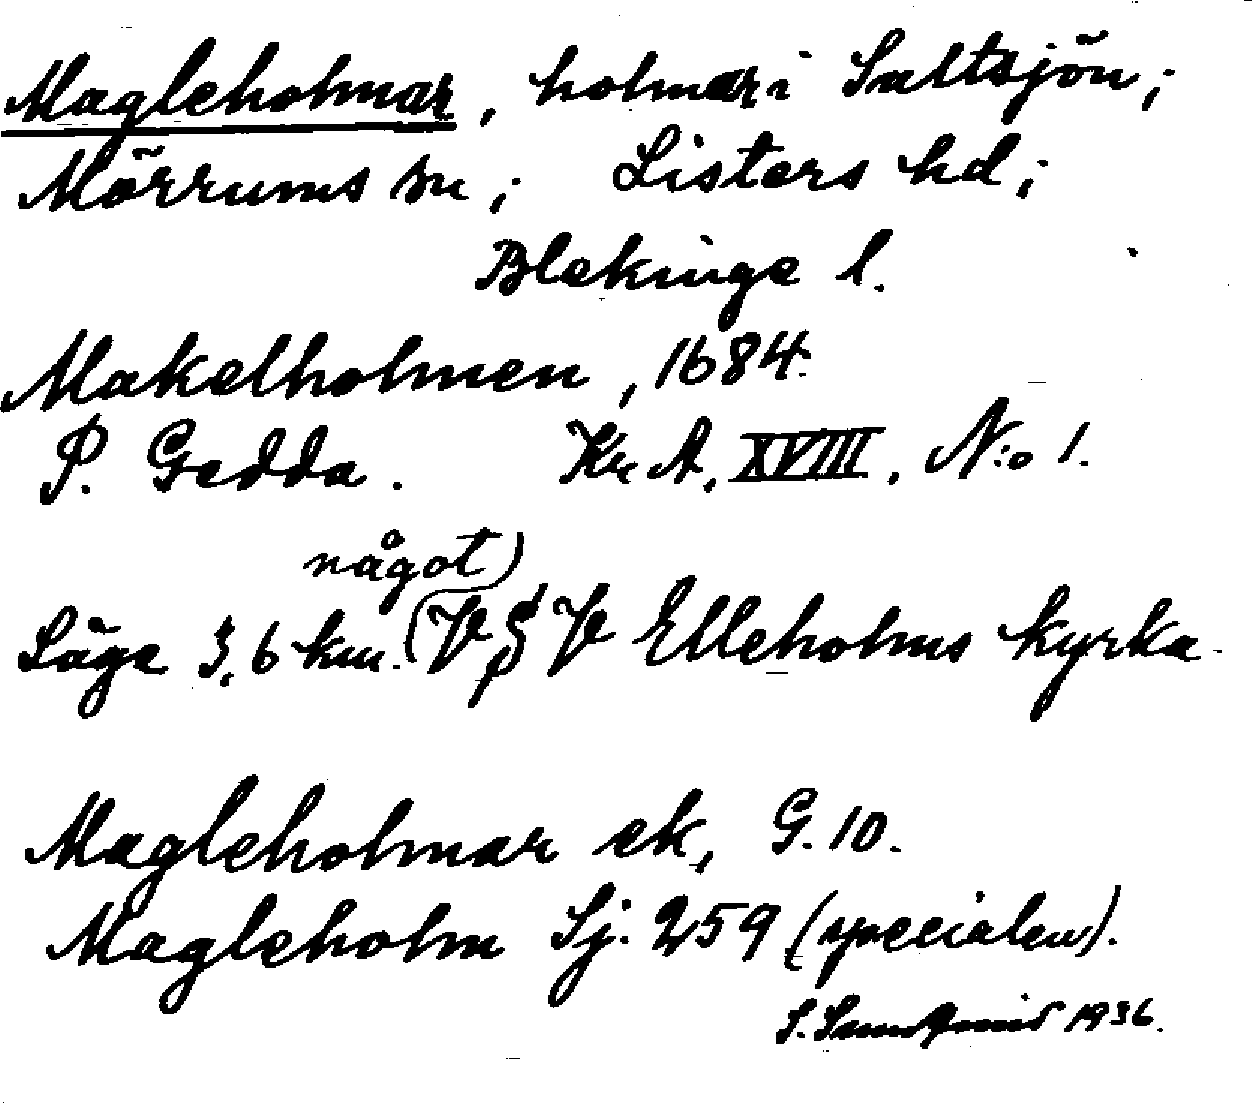 Magleholmar, holmar i Saltsjön;
Mörrums sn; Listers hd;
Blekinge l.
Makelholmen, 1684.
P. Gedda. Kr. A, XVIII, N:o 1.
något)
Läge 3,6 km. (V § V Elleholms kyrka.
Magleholmar ek, G. 10.
Magleholm Sj. 259 (specialen).
S. 1936.